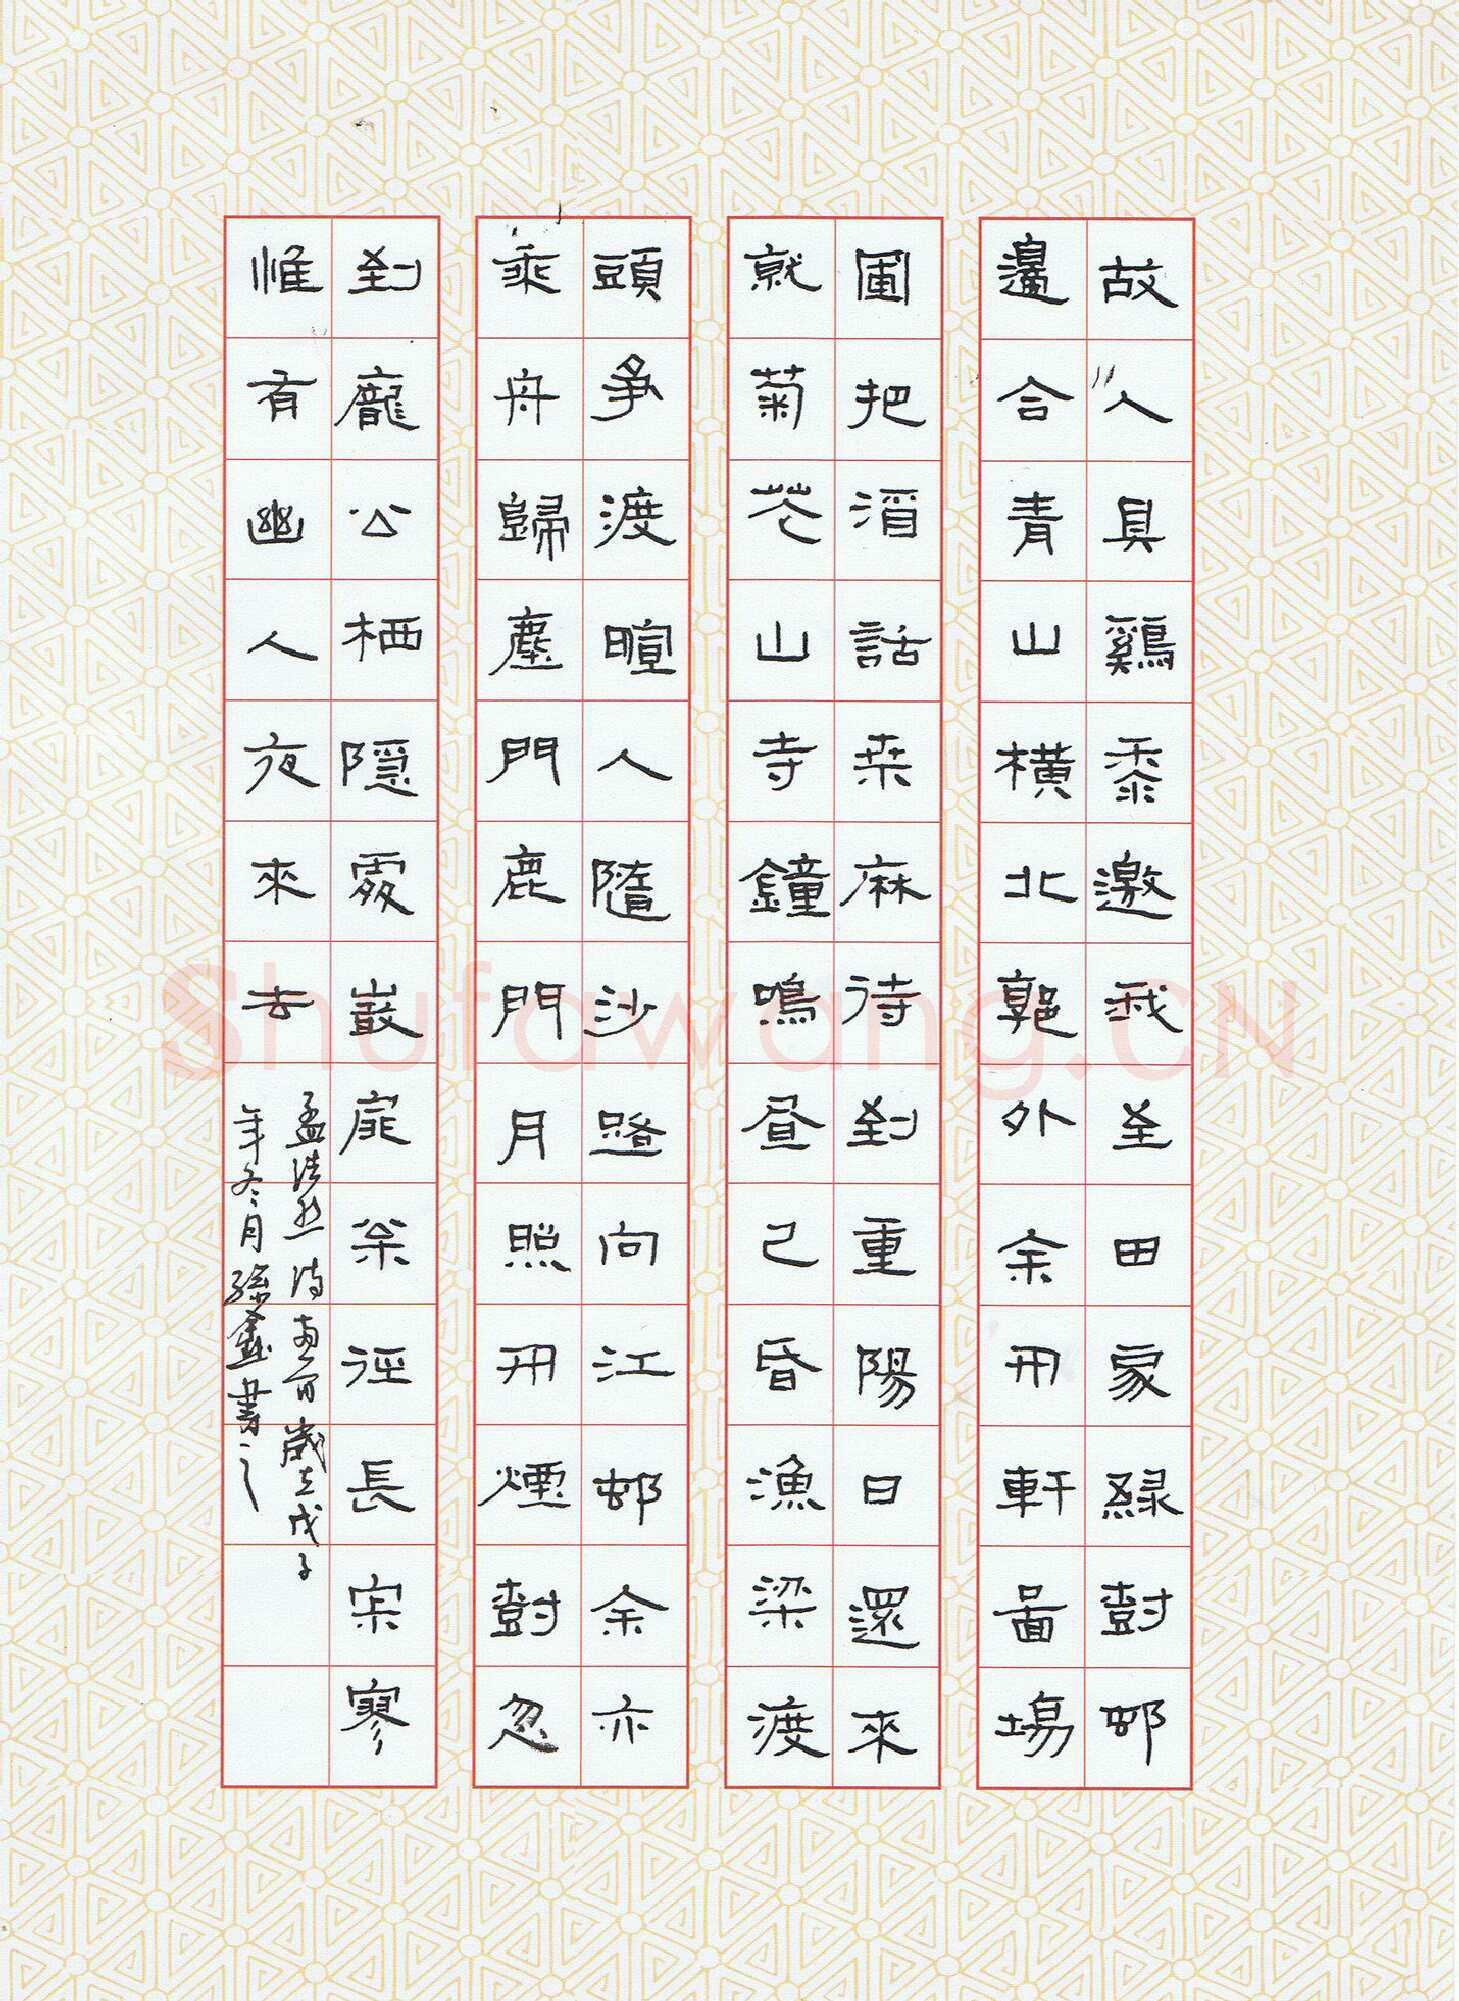 故人具鷄黍邀我至田家綠尌邨
邊合青山橫北郭外余开軒面場
圃把酒話桒麻待到重陽日還來
就菊花山寺鐘鳴昼已昏漁梁渡
頭爭渡暄人隨沙路向江邨余亦
乘舟歸塵門鹿門月照开煙尌忽
到龐公栖隱處巖扉枀徑長寂寥
惟有幽人夜來去
孟浩然詩兩首歲在戊子
年冬月孫鑫書之
Shufawang.CN